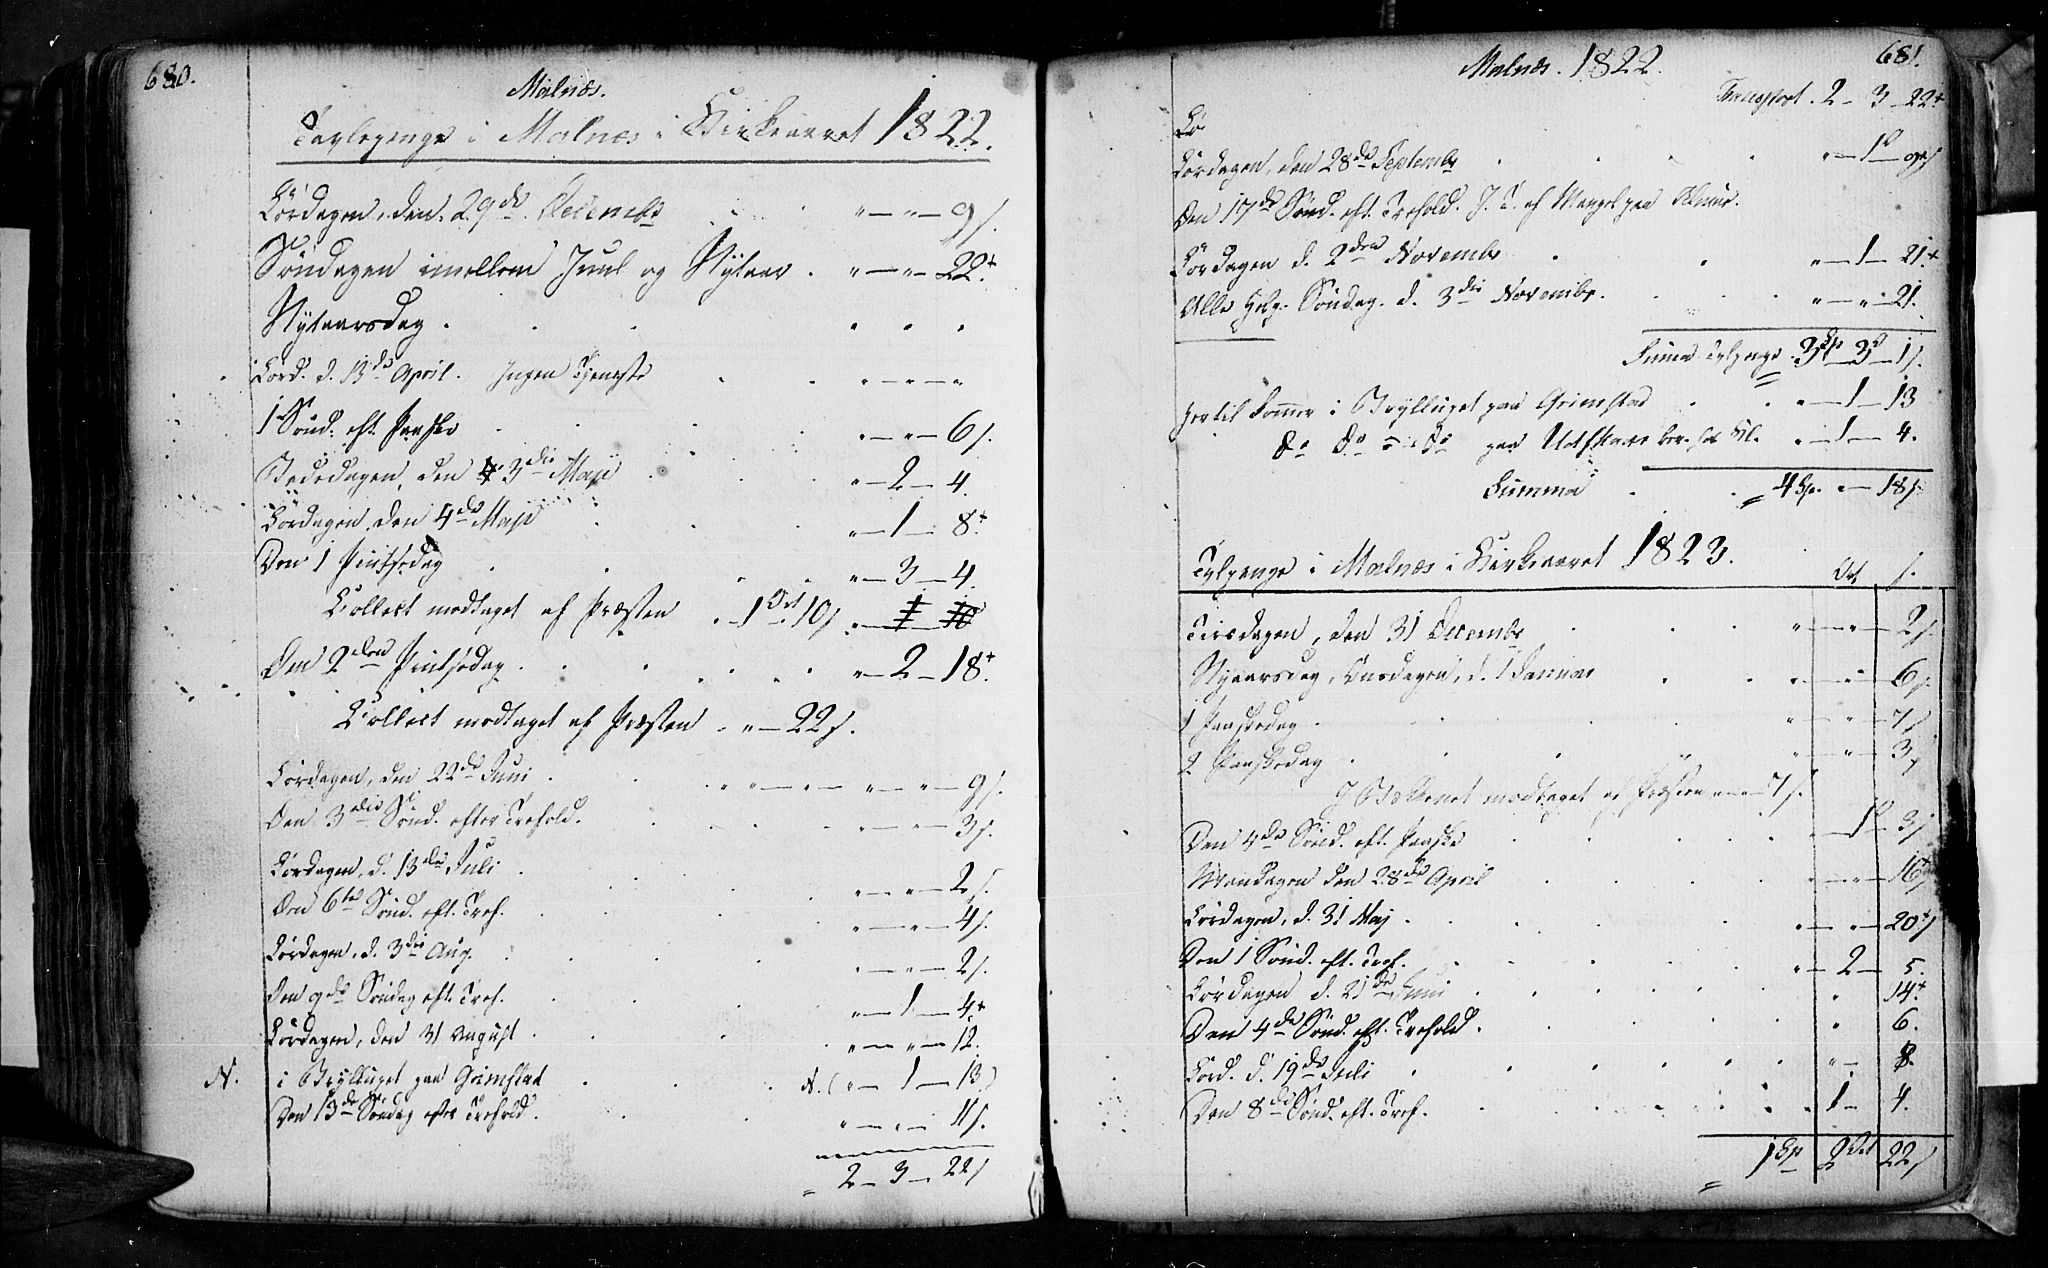 680.
Malnæs.
Tavlepenge i Malnæs i Kirkeaaret 1822.
Lördagen, den 29de Decembr " — " — 9 s.
Söndagen imellem Juul og Nytaar . " — " — 22.+
Nytaarsdag . " " "
Lörd. d. 13de April. Ingen Tjeneste " — " — "
1 Sönd. eft. Paaske " — " — 6 s.
Bededagen, den 3die Maji " — 2 — 4.
Lördagen den 4de Maji " — 1 — 8.+
Den 1 Pintsedag " — 3 — 4.
Collect modtaget af Præsten " — 1 Ort 10 s. " — 1 — 10
Den 2den Pintsedag " — 2 — 18.+
Collect modtaget af Præsten " — " — 22 s.
Lördagen, den 22de Juni " — " — 9 s.
Den 3die Sönd. efter Trefold. " — " — 3 s.
Lördagen, d. 13de Juli " — " — 2 s.
Den 6te Sönd. eft. Tref. " — " — 4 s.
Lördagen, d. 3die Aug. " — " — 2 s.
Den 9de Söndag eft. Tref. " — 1 — 4.+
Lördagen, den 31 August " — " — 12.
N. i Brylluppet paa Grimstad N. ( " — 1 — 13 )
Den 13de Söndag efter Trefold. " — " — 11 s.
= 2 — 3 — 22 s
681.
Malnæs. 1822.
Transport. 2 — 3 — 22+
Lö
Lördagen, den 28de Septembr " — 1 — 9 s
Den 17de Sönd. eft. Trefold. I. T. af Mangel paa Almue.
Lördagen d. 2den Novembr " — 1 — 21.+
Alle Helg. Söndag. d. 3die Novembr. " — " — 21.
Summa Tvlpenge 3 Sp — 3 — 1 s.
Hertil kommer i Brylluppet paa Grimstad " — 1 — 13
do do — do paa " — 1 — 4.
Summa = 4 Sp. " — 18 s
Tvlpenge i Malnæs i Kirkeaaret 1823.
Ort s.
Tirsdagen, den 31 Decembr " — " — 2 s.
Nytaarsdag, Onsdagen, d. 1 Januar " — " — 6 s.
1 Paaskedag . " — " — 7 s
2 Paaskedag . " — " — 3 s
I Bekkenet modtaget af Præsten " — " — 7 s.
Den 4de Sönd. eft. Paaske " — 1 — 3 s
Mandagen den 28de April " — " — 16+ s
Lördagen, d. 31 Maj . " — " — 20+ s
Den 1 Sönd. eft. Tref. " — 2 — 5.
Lördagen d. 21de Juni " 14.+
Den 4de Sönd. eft. Trefold. " 6.
Lörd. d. 19de Juli " — 8.
Den 8de Sönd. eft. Tref. 1 — 4.
= 1 Sp 2 Ort 22 s